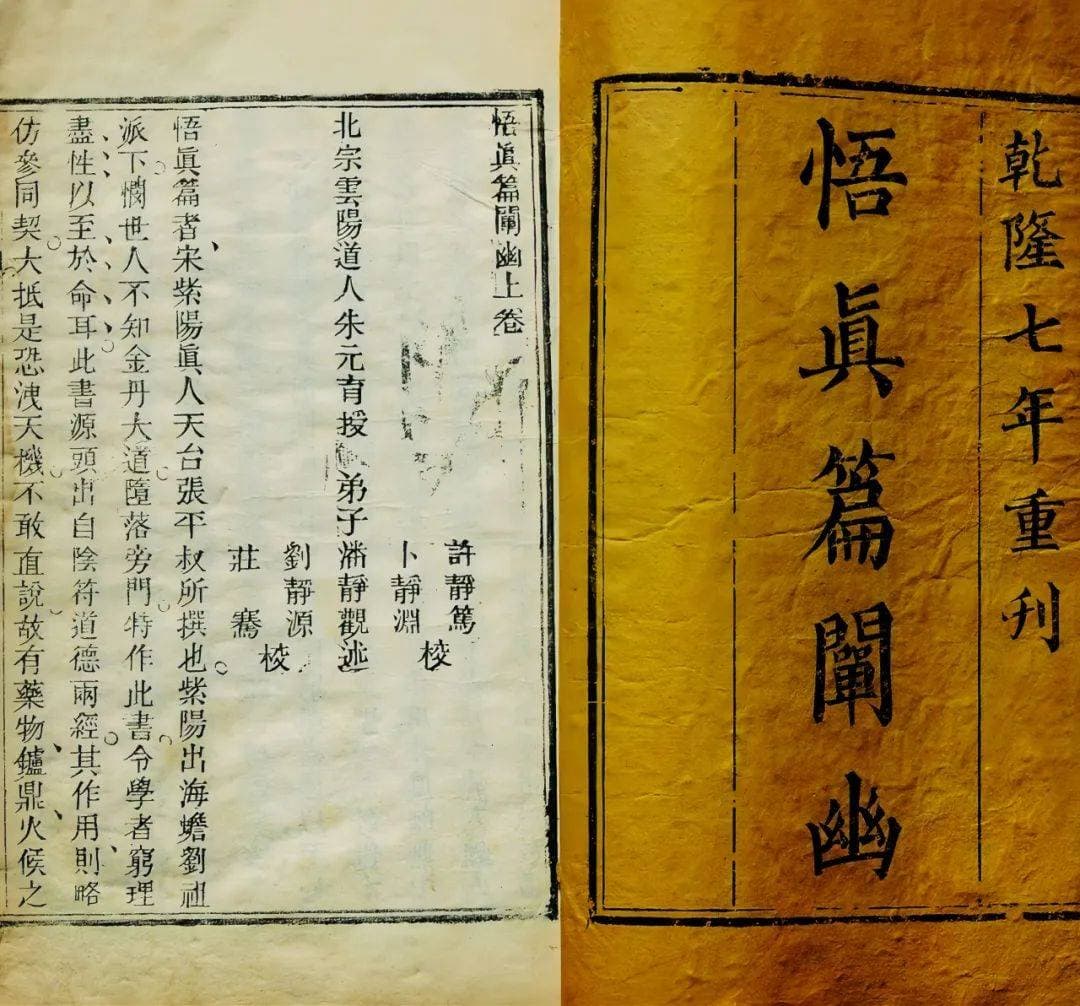 乾隆七年重刊
悟眞篇闡幽
悟眞篇闡幽上卷
許靜篤
卜靜淵
校
北宗雲陽道人朱元育授 弟子潘靜觀述
劉靜源
莊騫
校
悟眞篇者宋紫陽眞人天台張平叔所撰也紫陽出海蟾劉祖
派下憫世人不知金丹大道墮落旁門特作此書令學者窮理
盡性以至於命耳此書源頭出自陰符道德兩經其作用則略
仿參同契大抵是恐洩天機不敢直說故有藥物鑪鼎火候之